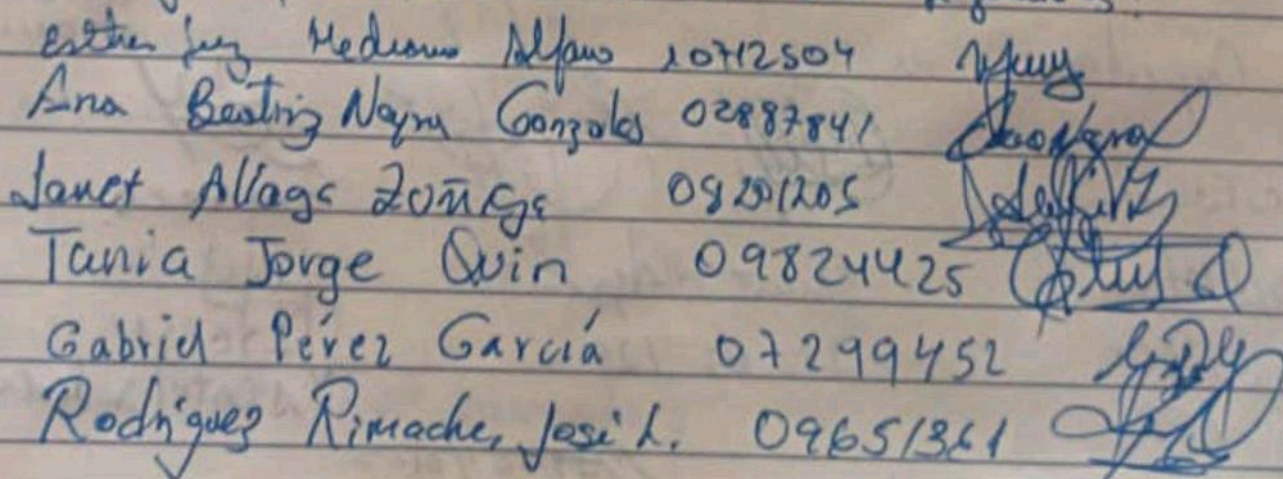 Esther Luz Medrano Alfaro 10712504
Ana Beatriz Neyra Gonzales 02887841
Janet Aliaga Zoñiga 08201205
Tania Jorge Quin 09824425
Gabriel Pérez García 07299452
Rodriguez Rimache, José L. 09651361